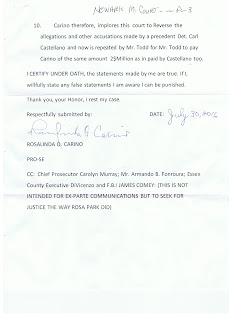 NEWARK M. COURT - - P-3
10. Carino therefore, implores this court to Reverse the
allegations and other accusations made by a precedent Det. Carl
Castellano and now is repeated by Mr. Todd for Mr. Todd to pay
Carino of the same amount 2$Million as in paid by Castellano too.
I CERTIFY UNDER OATH, the statements made by me are true. If I,
willfully state any false statements I am aware I can be punished.
Thank you, your Honor, I rest my case.
Respectfully submitted by: DATE: July 30, 2016
Rosalinda O. Carino
ROSALINDA O. CARINO
PRO-SE
CC: Chief Prosecutor Carolyn Murray; Mr. Armando B. Fonroura; Essex
County Executive DiVicenzo and F.B.I JAMES COMEY: (THIS IS NOT
INTENDED FOR EX-PARTE COMMUNICATIONS BUT TO SEEK FOR
JUSTICE THE WAY ROSA PARK DID)